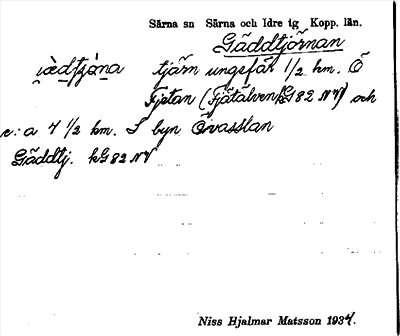 Särna sn Särna och Idre tg Kopp. län.
Gäddtjörnan
tjärn ungefär 1/2 km. Ö
Fjätan (Fjätälven kG82 NV) och
c:a 4 1/2 km. S byn Övasslan
Gäddtj. kG82 NV
Niss Hjalmar Matsson 1934.